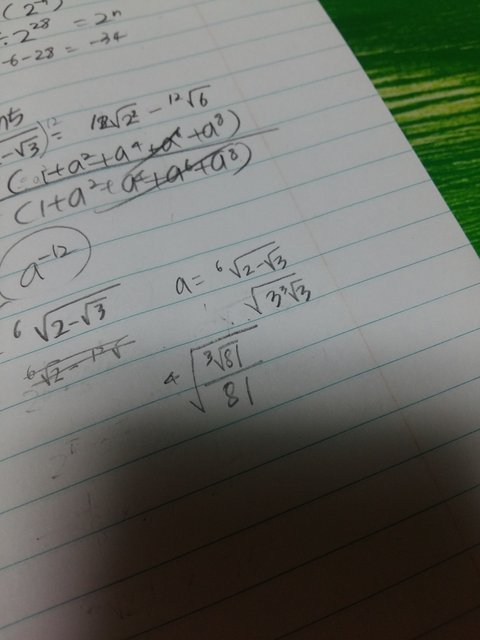 ÷ 2²⁸ = 2ⁿ
-6-28 = -34
-√3)¹² = 12√2 - ¹²√6
(1+a²+a⁴+a⁶+a⁸)
(1+a²+a⁴+a⁶+a⁸)
a⁻¹²
⁶√2-√3 a = ⁶√2-√3
√3³√3
⁶√2 - ¹²√
⁴√³√81/81